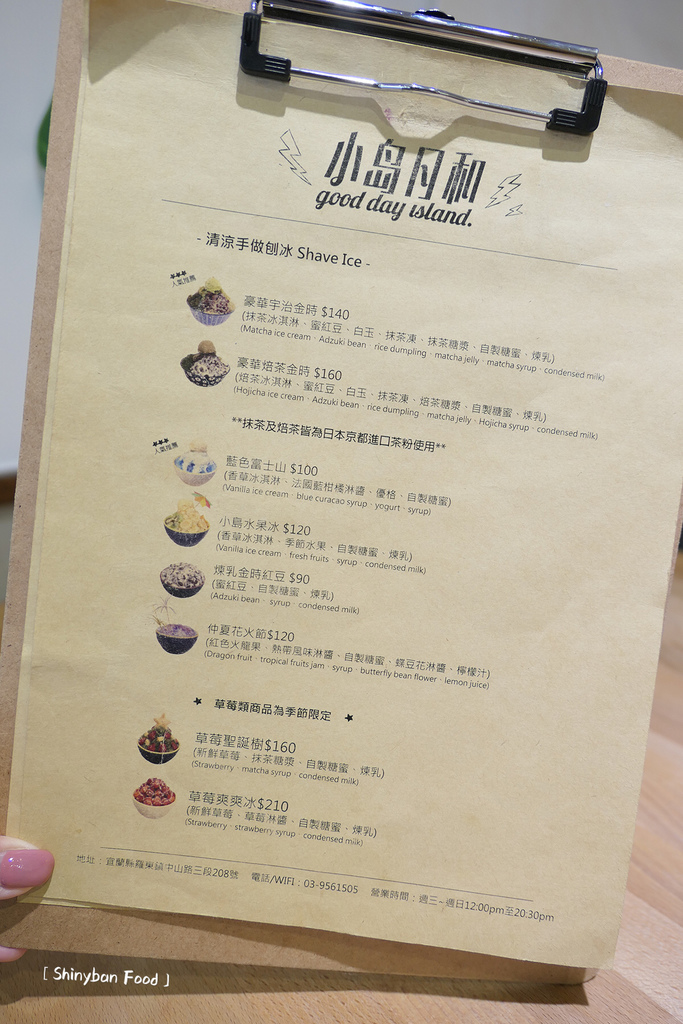 小島日和
good day island.
- 清涼手做刨冰 Shave Ice -
★★★
人氣推薦
豪華宇治金時 $140
(抹茶冰淇淋、蜜紅豆、白玉、抹茶凍、抹茶糖漿、自製糖蜜、煉乳)
(Matcha ice cream、Adzuki bean、rice dumpling、matcha jelly、matcha syrup、condensed milk)
豪華焙茶金時 $160
(焙茶冰淇淋、蜜紅豆、白玉、抹茶凍、焙茶糖漿、自製糖蜜、煉乳)
(Hojicha ice cream、Adzuki bean、rice dumpling、matcha jelly、Hojicha syrup、condensed milk)
**抹茶及焙茶皆為日本京都進口茶粉使用**
★★★
人氣推薦
藍色富士山 $100
(香草冰淇淋、法國藍柑橘淋醬、優格、自製糖蜜)
(Vanilla ice cream、blue curacao syrup、yogurt、syrup)
小島水果冰 $120
(香草冰淇淋、季節水果、自製糖蜜、煉乳)
(Vanilla ice cream、fresh fruits、syrup、condensed milk)
煉乳金時紅豆 $90
(蜜紅豆、自製糖蜜、煉乳)
(Adzuki bean、syrup、condensed milk)
仲夏花火節$120
(紅色火龍果、熱帶風味淋醬、自製糖蜜、蝶豆花淋醬、檸檬汁)
(Dragon fruit、tropical fruits jam、syrup、butterfly bean flower、lemon juice)
★ 草莓類商品為季節限定 ★
草莓聖誕樹$160
(新鮮草莓、抹茶糖漿、自製糖蜜、煉乳)
(Strawberry、matcha syrup、condensed milk)
草莓爽爽冰$210
(新鮮草莓、草莓淋醬、自製糖蜜、煉乳)
(Strawberry、strawberry syrup、condensed milk)
地址：宜蘭縣羅東鎮中山路三段208號 電話/WIFI：03-9561505 營業時間：週三~週日12:00pm至20:30pm
[ Shinyban Food ]